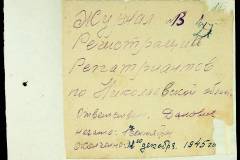 Журнал В
Регистрации
Репатриантов
по Николаевской обла
Ответствен.
начато: сентября
окончено: декабря 1945 го